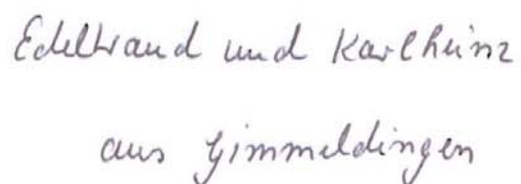 Edeltraud und Karlheinz
aus Gimmeldingen